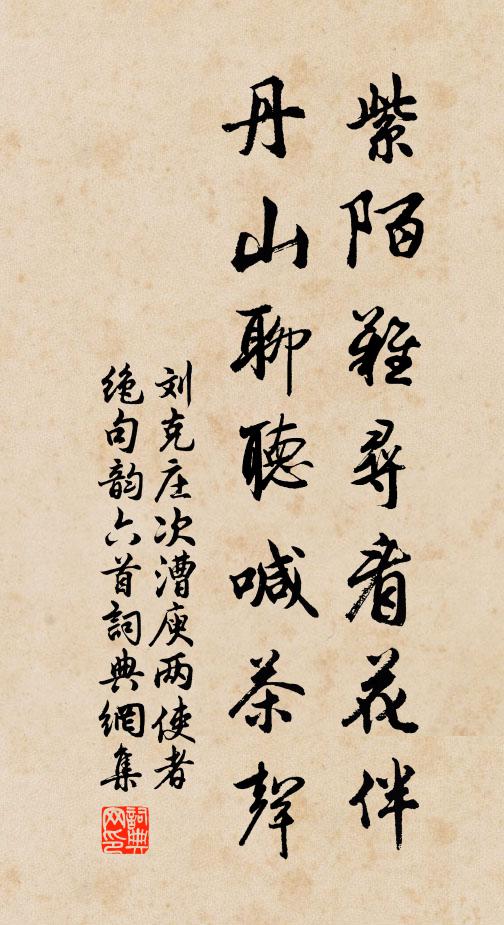 紫陌難尋看花伴
丹山聊聽喊茶聲
刘克庄次漕庾两使者
绝句韵六首詞典網集
詞典网印